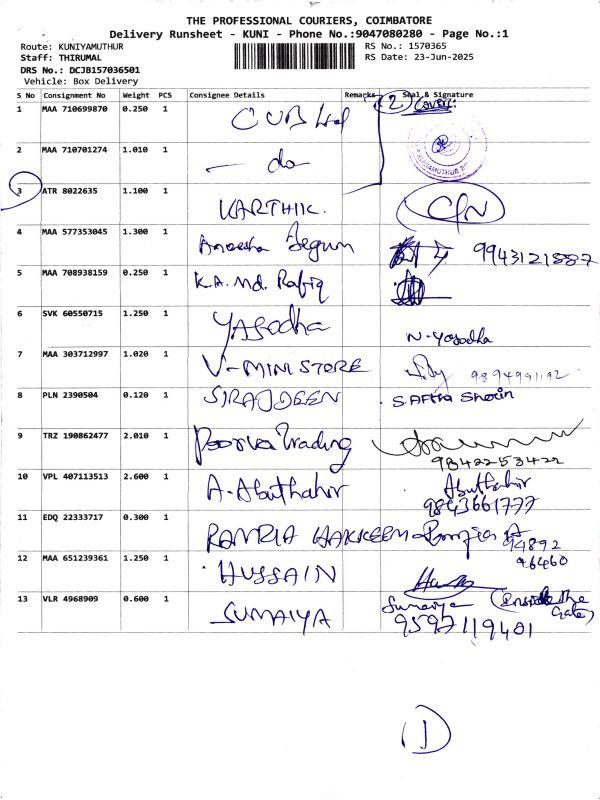 THE PROFESSIONAL COURIERS, COIMBATORE
Delivery Runsheet - KUNI - Phone No.:9047080280 - Page No.:1
Route: KUNIYAMUTHUR RS No.: 1570365
Staff: THIRUMAL RS Date: 23-Jun-2025
DRS No.: DCJB157036501
Vehicle: Box Delivery
S No Consignment No Weight PCS Consignee Details Remarks Seal & Signature
(2) Covers:
1 MAA 710699870 0.250 1 CUB Ltd
2 MAA 710701274 1.010 1 — do
KUNIYAMUTHUR
3 ATR 8022635 1.100 1 KARTHIK.
4 MAA 577353045 1.300 1 Begum 9943121887
5 MAA 708938159 0.250 1 K.A. Md. Rafiq
6 SVK 60550715 1.250 1 YASodha N. Yasodha
7 MAA 303712997 1.020 1 V-MINI STORE 9894991192
8 PLN 2390504 0.120 1 SIRAJDEEN S.
9 TRZ 190862477 2.010 1 Poorva Trading
9842253422
10 VPL 407113513 2.600 1 A. Abuthahir Abuthahir
9843661777
11 EDQ 22333717 0.300 1 RAMZIA HAKKEEM Ramzia A
94892
96460
12 MAA 651239361 1.250 1 HUSSAIN
13 VLR 4968909 0.600 1 SUMAIYA Sumaiya (Inside the Gate)
9597119401
(1)